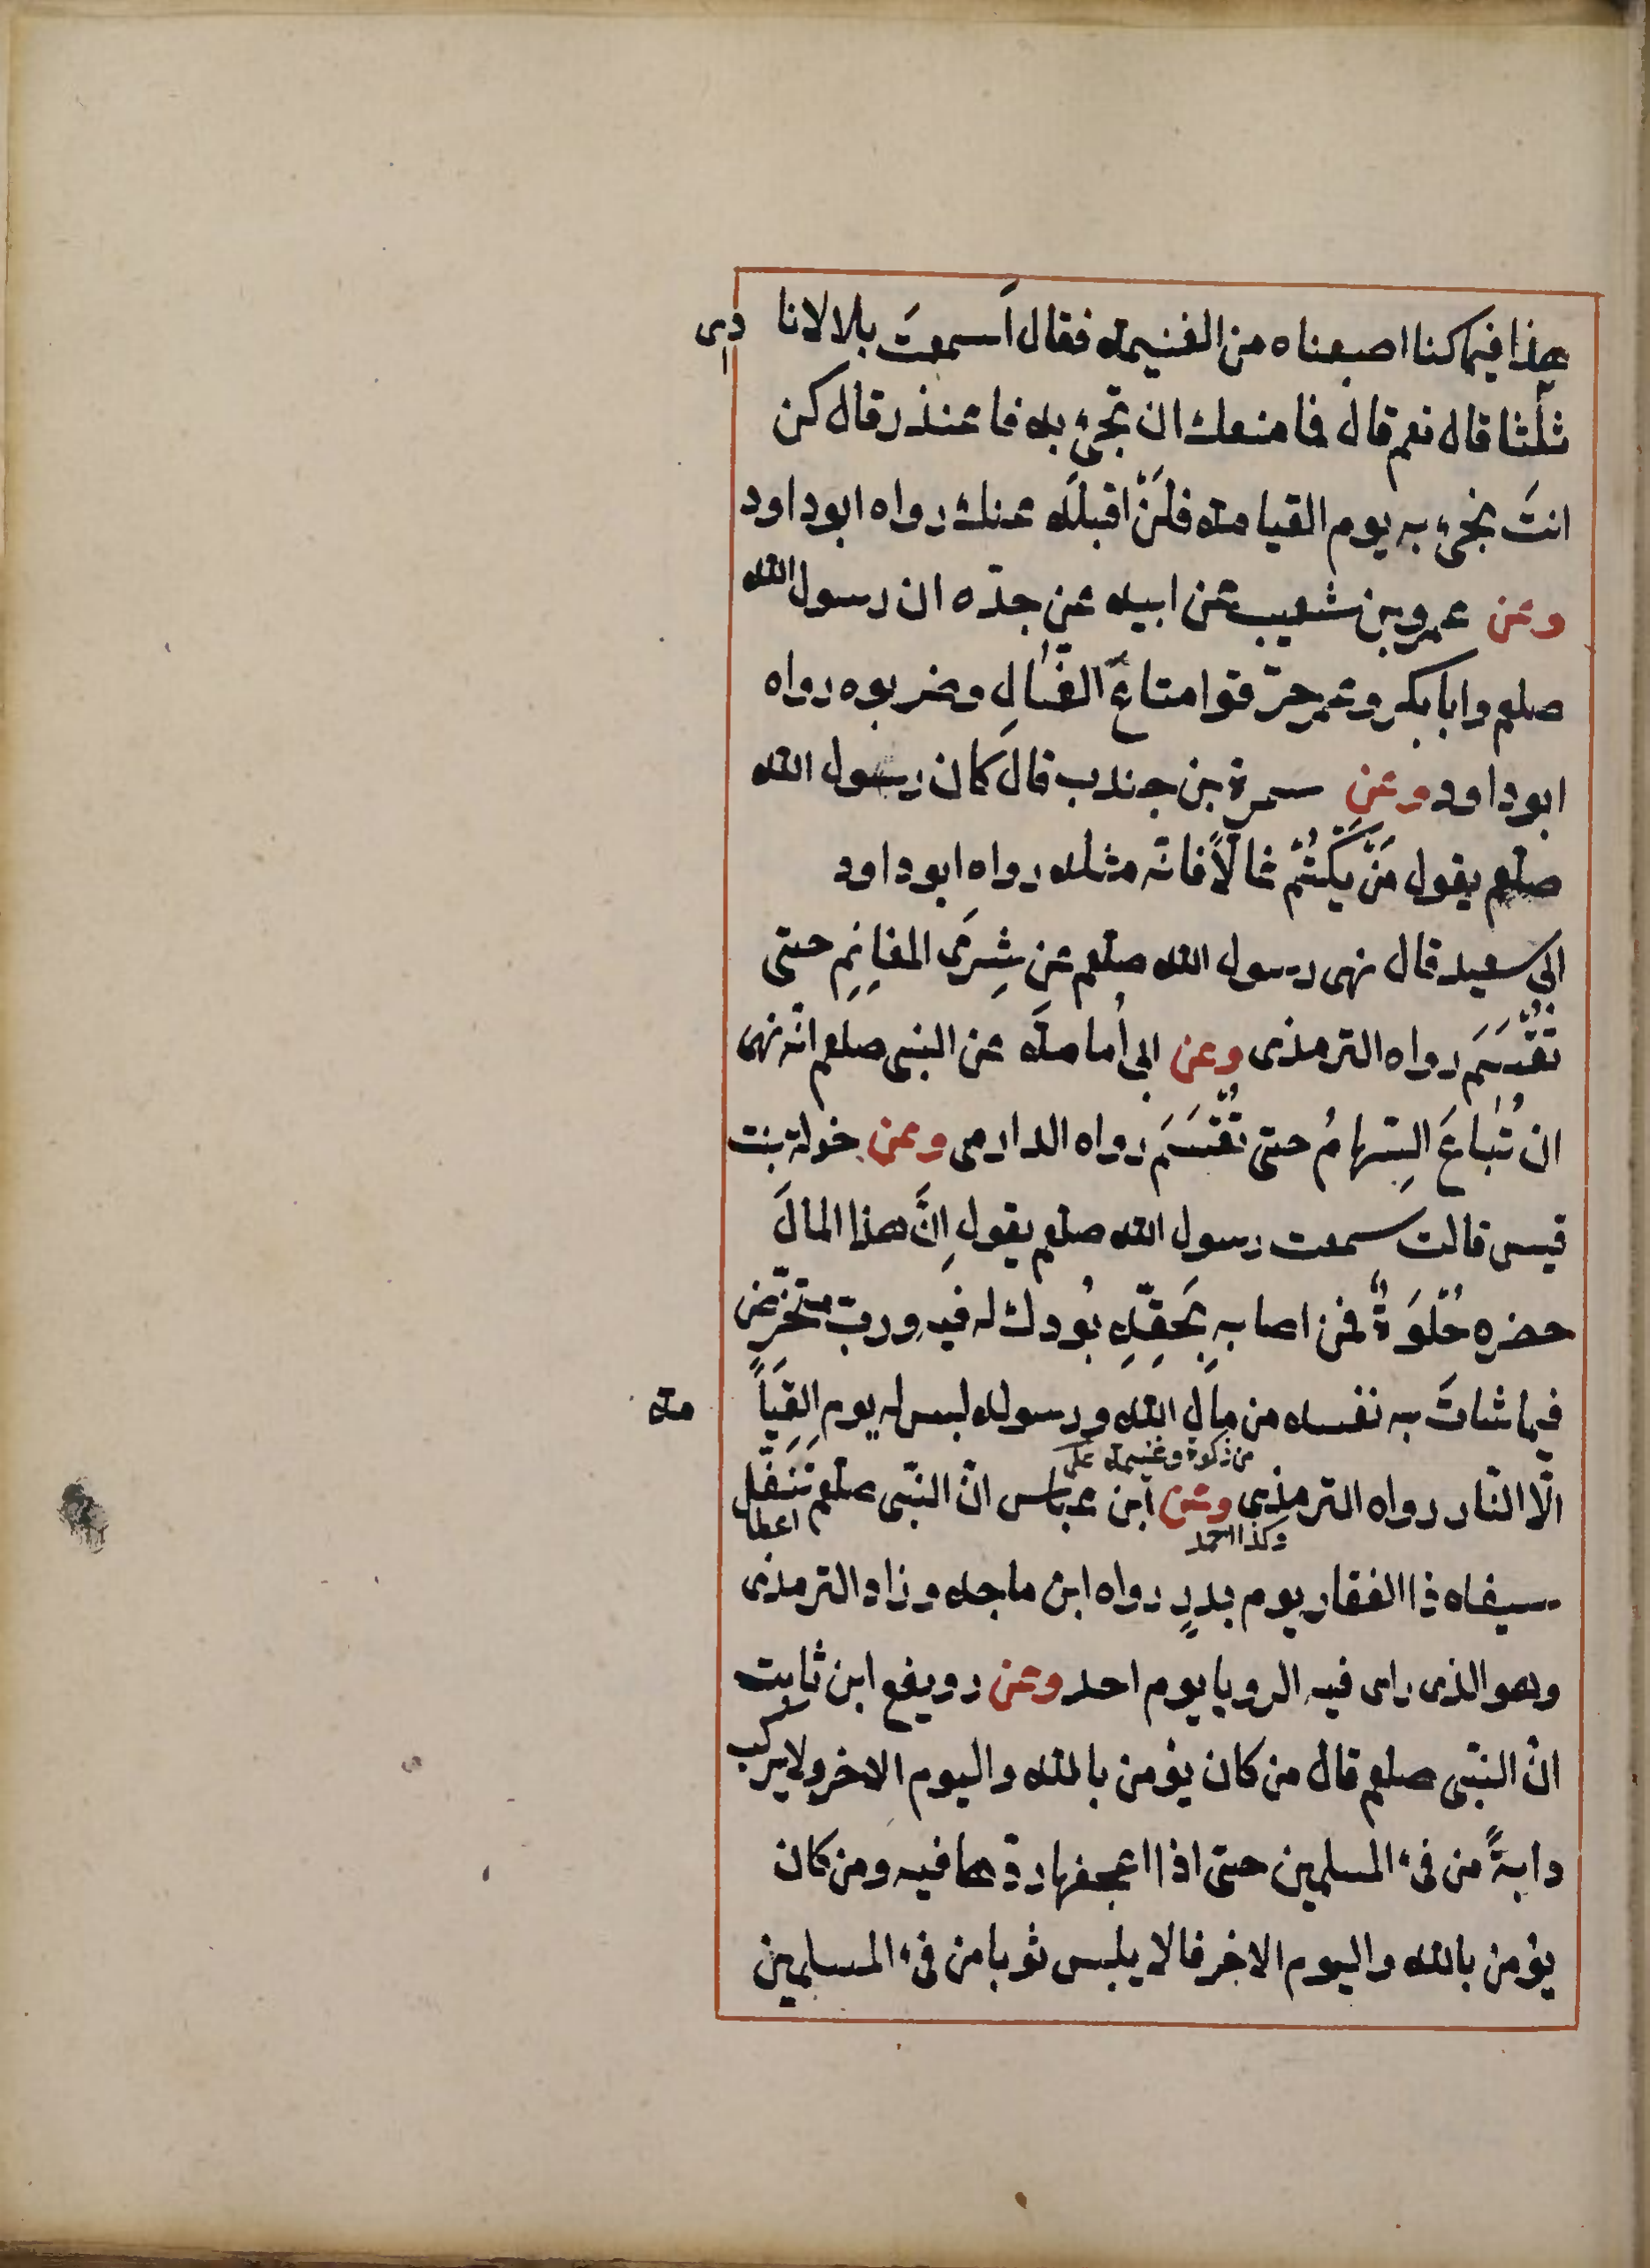 هذا فيما كنا اصبعناه من الغنيمة فقال أسمعتَ بلالا نادى
ثلثا قال نعم قال فما منعك ان تجىء به فاعتذر قال كن
انتَ تجىء به يوم القيامة فلَنْ اقبلَه عنك رواه ابوداود
وعن عمروبن شعيب عن ابيه عن جدّه ان رسول الله
صلعم وابا بكر وعمر حرّقوا متاعَ الغالِ وضربوه رواه
ابوداود وعن سمرة بن جندب قال كان رسول الله
صلعم يقول مَنْ يَكْتُمْ غالّاً فانّه مثله رواه ابوداود
ابي سعيد قال نهى رسول الله صلعم عن شِرَى المغانِمِ حتى
تُقْسَمَ رواه الترمذى وعن ابى أُمامة عن النبى صلعم انّه نهى
ان تُباعَ السِّهامُ حتى تُقْسَمَ رواه الدارمى وعن خولة بنت
قيس قالت سمعت رسول الله صلعم يقول اِنَّ هذا المالَ
حضره حُلْوَةٌ فمن اصابه بِحَقِّهِ بُورك له فيه وربّ متخوّض
فيما شاتَ به نفسه من مالِ الله ورسوله ليس له يوم القِيَاً مة
من زكوة وغنيمة على
الّا النّار رواه الترمذى وعن ابن عباس انّ النّبى صلعم تَنَفَّل
وكذا احمد اعطا
سيفاه ذا الفقار يوم بدرٍ رواه ابن ماجه وزاد الترمذى
وهو الذى راى فيه الرويا يوم احد وعن رويفع ابن ثابت
انّ النبّى صلعم قال من كان يؤمن بالله واليوم الاخر ولا يركب
دابةً من فىء المسلمين حتى اذا اعجفها ردّها فيه ومن كان
يؤمن بالله واليوم الاخر فالا يلبس ثوبا من فىء المسلمين